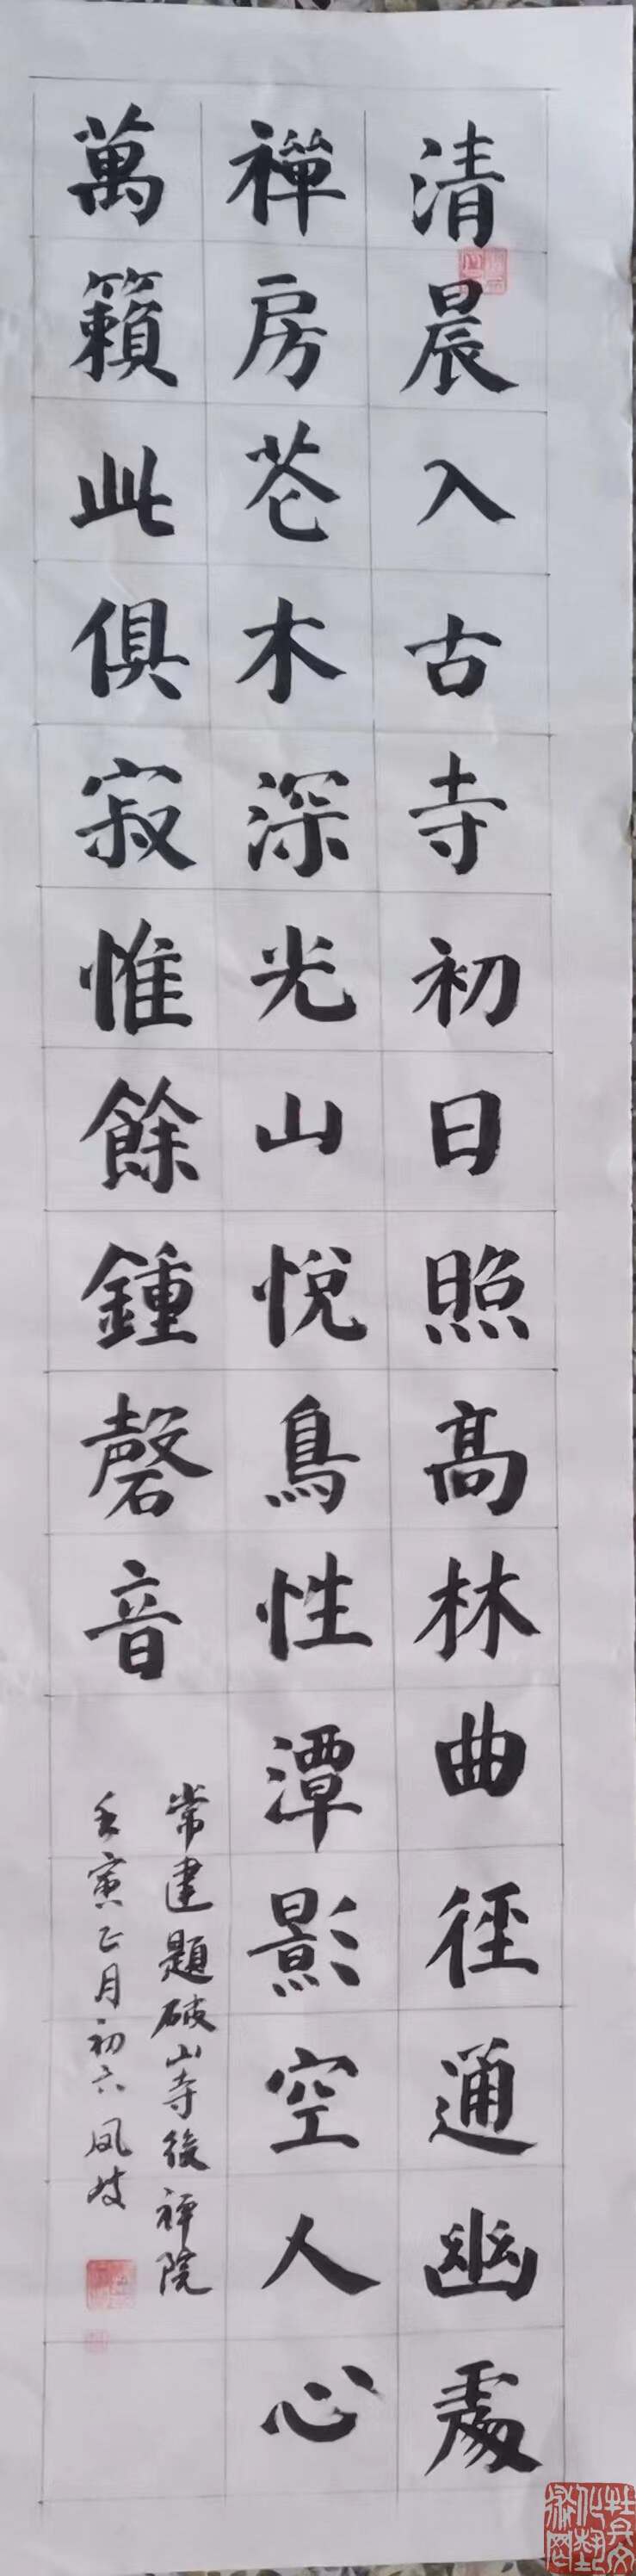 清晨入古寺初日照高林曲徑通幽處
禪房花木深光山悅鳥性潭影空人心
萬籟此俱寂惟餘鍾磬音
常建題破山寺後禅院
壬寅正月初六凤岐